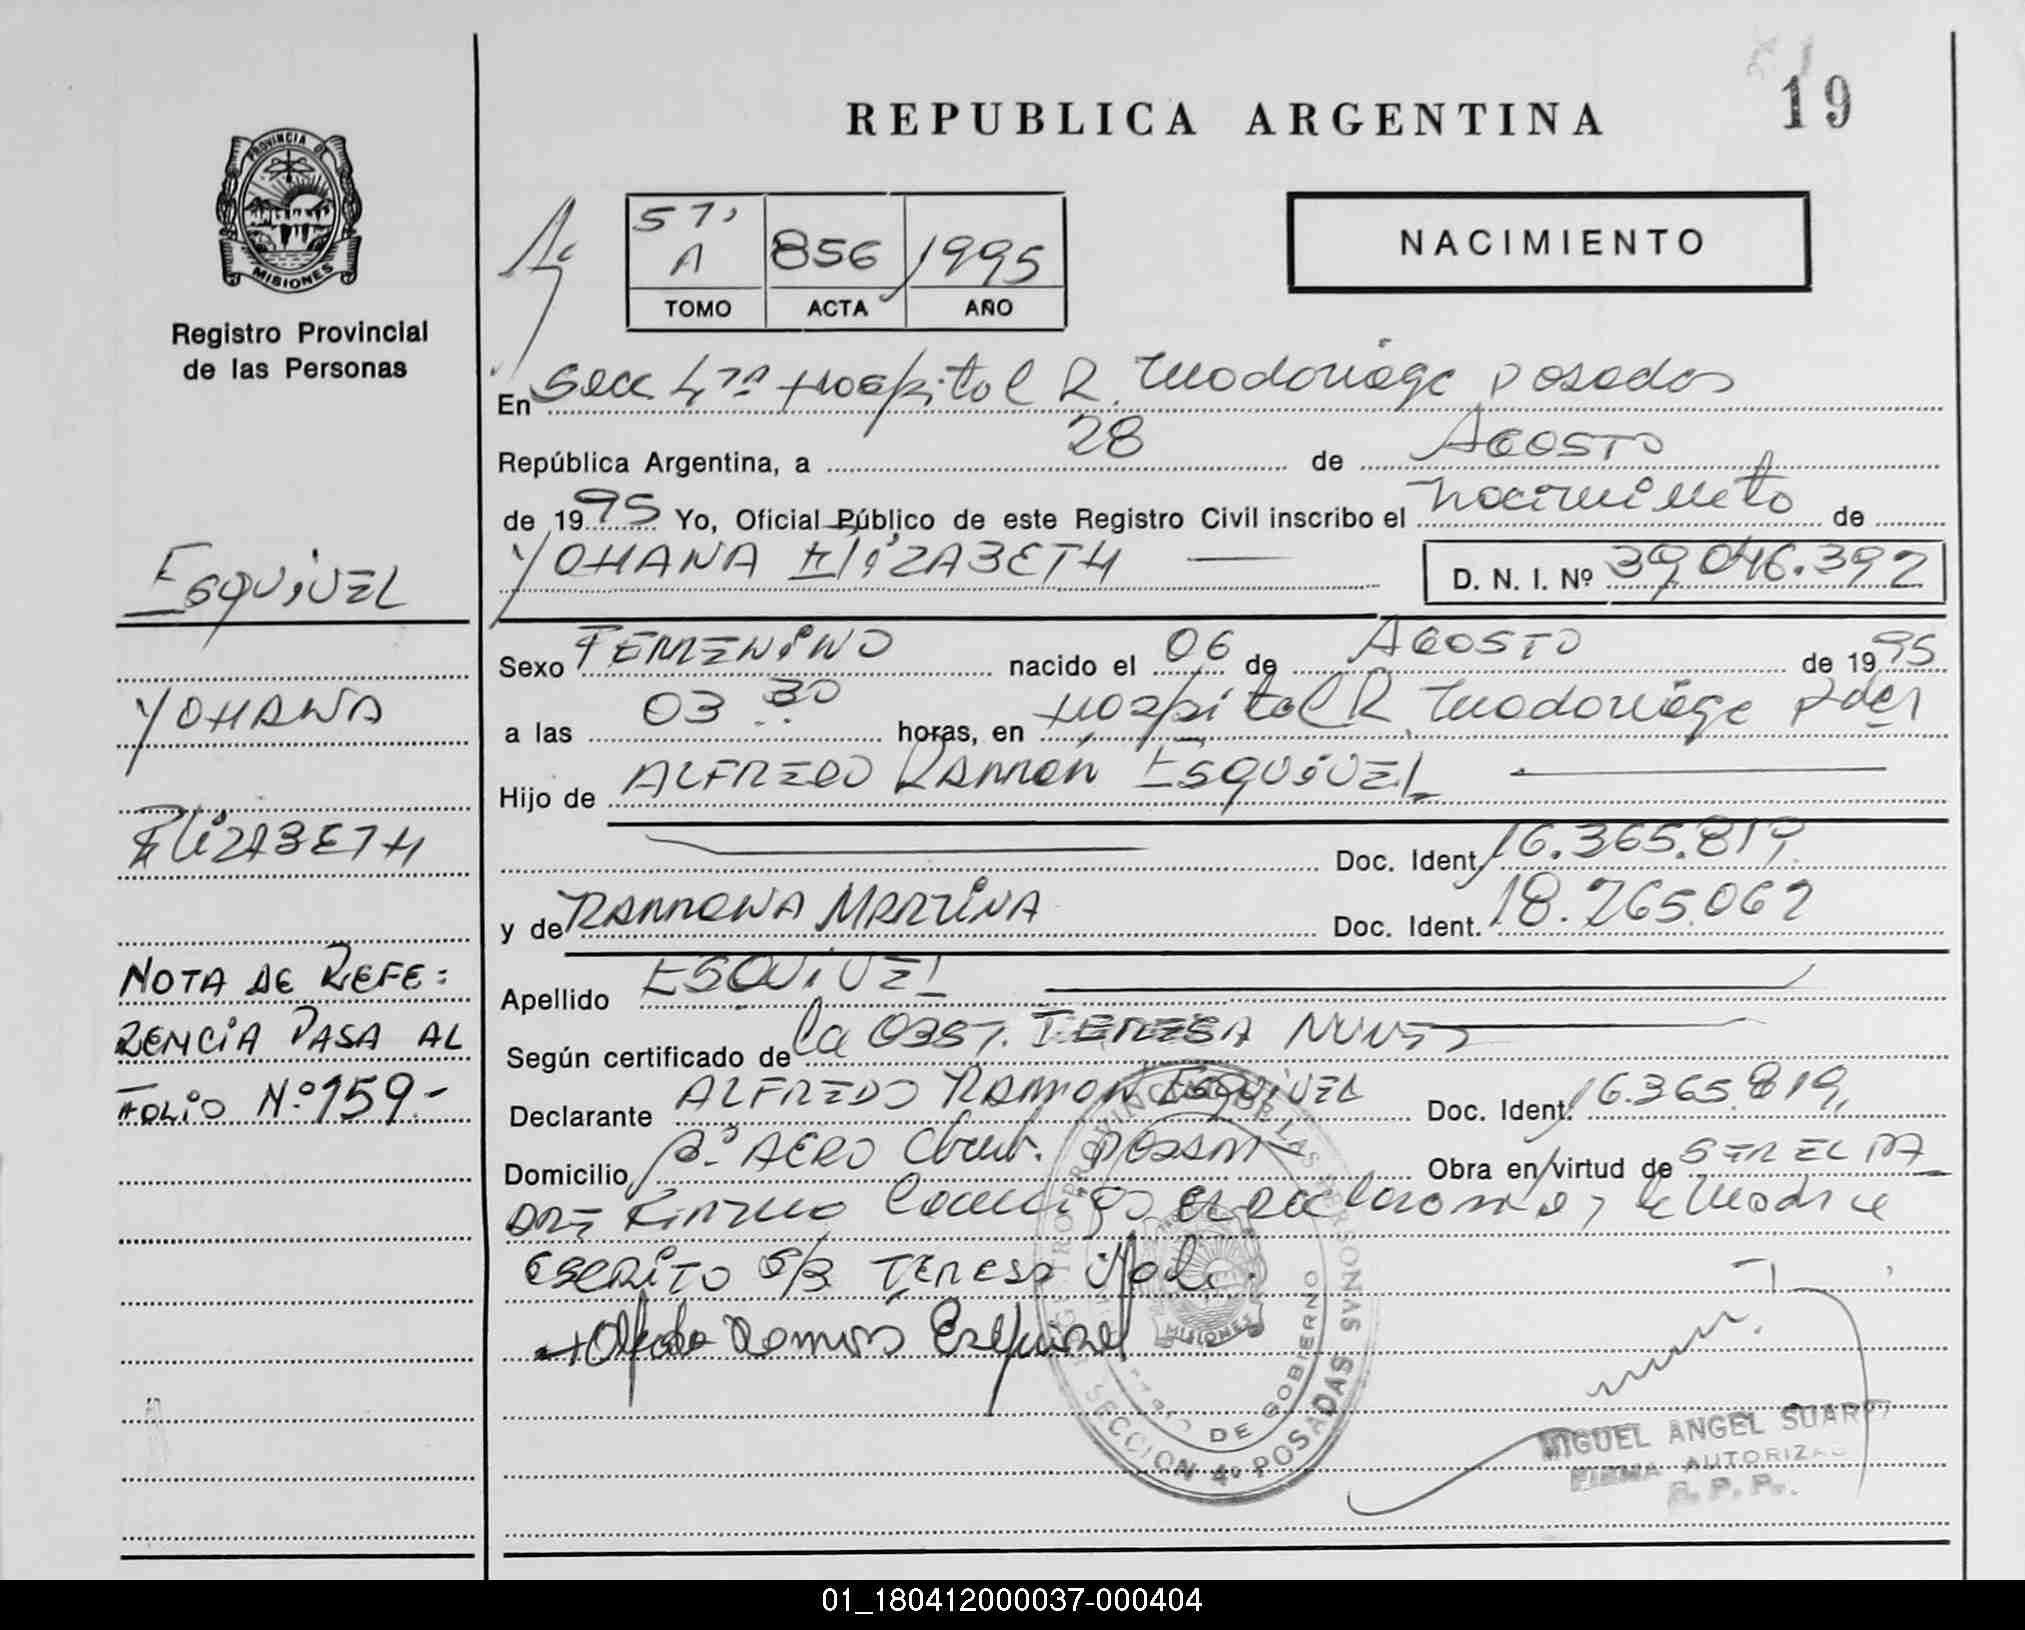 19
REPUBLICA ARGENTINA
PROVINCIA DE
MISIONES
Registro Provincial
de las Personas
57,
A 856 1995
TOMO ACTA AÑO
NACIMIENTO
En Secc 4ta Hospital R. Madariaga Posadas
República Argentina, a 28 de AGOSTO
de 1995 Yo, Oficial Público de este Registro Civil inscribo el nacimiento de
YOHANA ELIZABETH
D. N. I. Nº 39.046.392
Sexo FEMENINO nacido el 06 de AGOSTO de 1995
a las 03.30 horas, en Hospital R. Madariaga Pdas
Hijo de ALFREDO RAMON ESQUIVEL
Doc. Ident. 16.365.819
y de RAMONA MARTINA Doc. Ident. 18.765.062
Apellido ESQUIVEL
Según certificado de la OBST. TERESA NUNEZ
Declarante ALFREDO RAMON ESQUIVEL Doc. Ident. 16.365.819,
Domicilio Bº AERO Club. POSADAS Obra en virtud de SER EL PA
DRE FIRMO conmigo el declarante, la Madre
ESCRITO S/R TERESA Vale.
Alfredo Ramón Esquivel
ESQUIVEL
YOHANA
ELIZABETH
NOTA DE REFE:
RENCIA PASA AL
FOLIO Nº 159.-
SECCION 4º POSADAS
DE GOBIERNO
MISIONES
MIGUEL ANGEL SUAREZ
FIRMA AUTORIZADA
R. P. P.
01_180412000037-000404